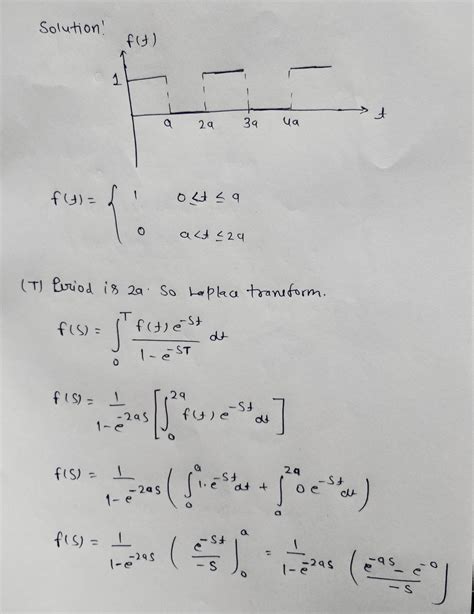 Solution!
f(t)
1
a 2a 3a 4a t
f(t) = { 1 0≤t≤a
0 a<t≤2a
(T) Period is 2a. So Laplace transform.
f(s) = ∫₀ᵀ f(t)e^-st / 1-e^-sT dt
f(s) = 1/1-e^-2as [∫₀^2a f(t)e^-st dt]
f(s) = 1/1-e^-2as (∫₀^a 1.e^-st dt + ∫ₐ^2a 0 e^-st dt)
f(s) = 1/1-e^-2as (e^-st/-s)₀^a = 1/1-e^-2as (e^-as - e^-0/-s]